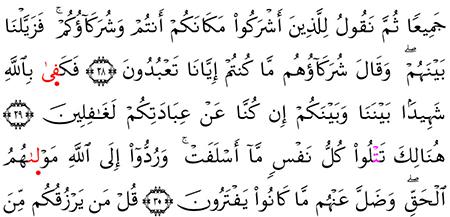 جَمِيعًا ثُمَّ نَقُولُ لِلَّذِينَ أَشْرَكُوا۟ مَكَانَكُمْ أَنتُمْ وَشُرَكَآؤُكُمْ ۚ فَزَيَّلْنَا
بَيْنَهُمْ ۖ وَقَالَ شُرَكَآؤُهُم مَّا كُنتُمْ إِيَّانَا تَعْبُدُونَ ﴿٢٨﴾ فَكَفىٰ بِاللَّهِ
شَهِيدًۢا بَيْنَنَا وَبَيْنَكُمْ إِن كُنَّا عَنْ عِبَادَتِكُمْ لَغَـٰفِلِينَ ﴿٢٩﴾
هُنَالِكَ تَتْلُوا۟ كُلُّ نَفْسٍ مَّآ أَسْلَفَتْ ۚ وَرُدُّوٓا۟ إِلَى اللَّهِ مَوْلَىٰهُمُ
الْحَقِّ ۖ وَضَلَّ عَنْهُم مَّا كَانُوا۟ يَفْتَرُونَ ﴿٣٠﴾ قُلْ مَن يَرْزُقُكُم مِّنَ